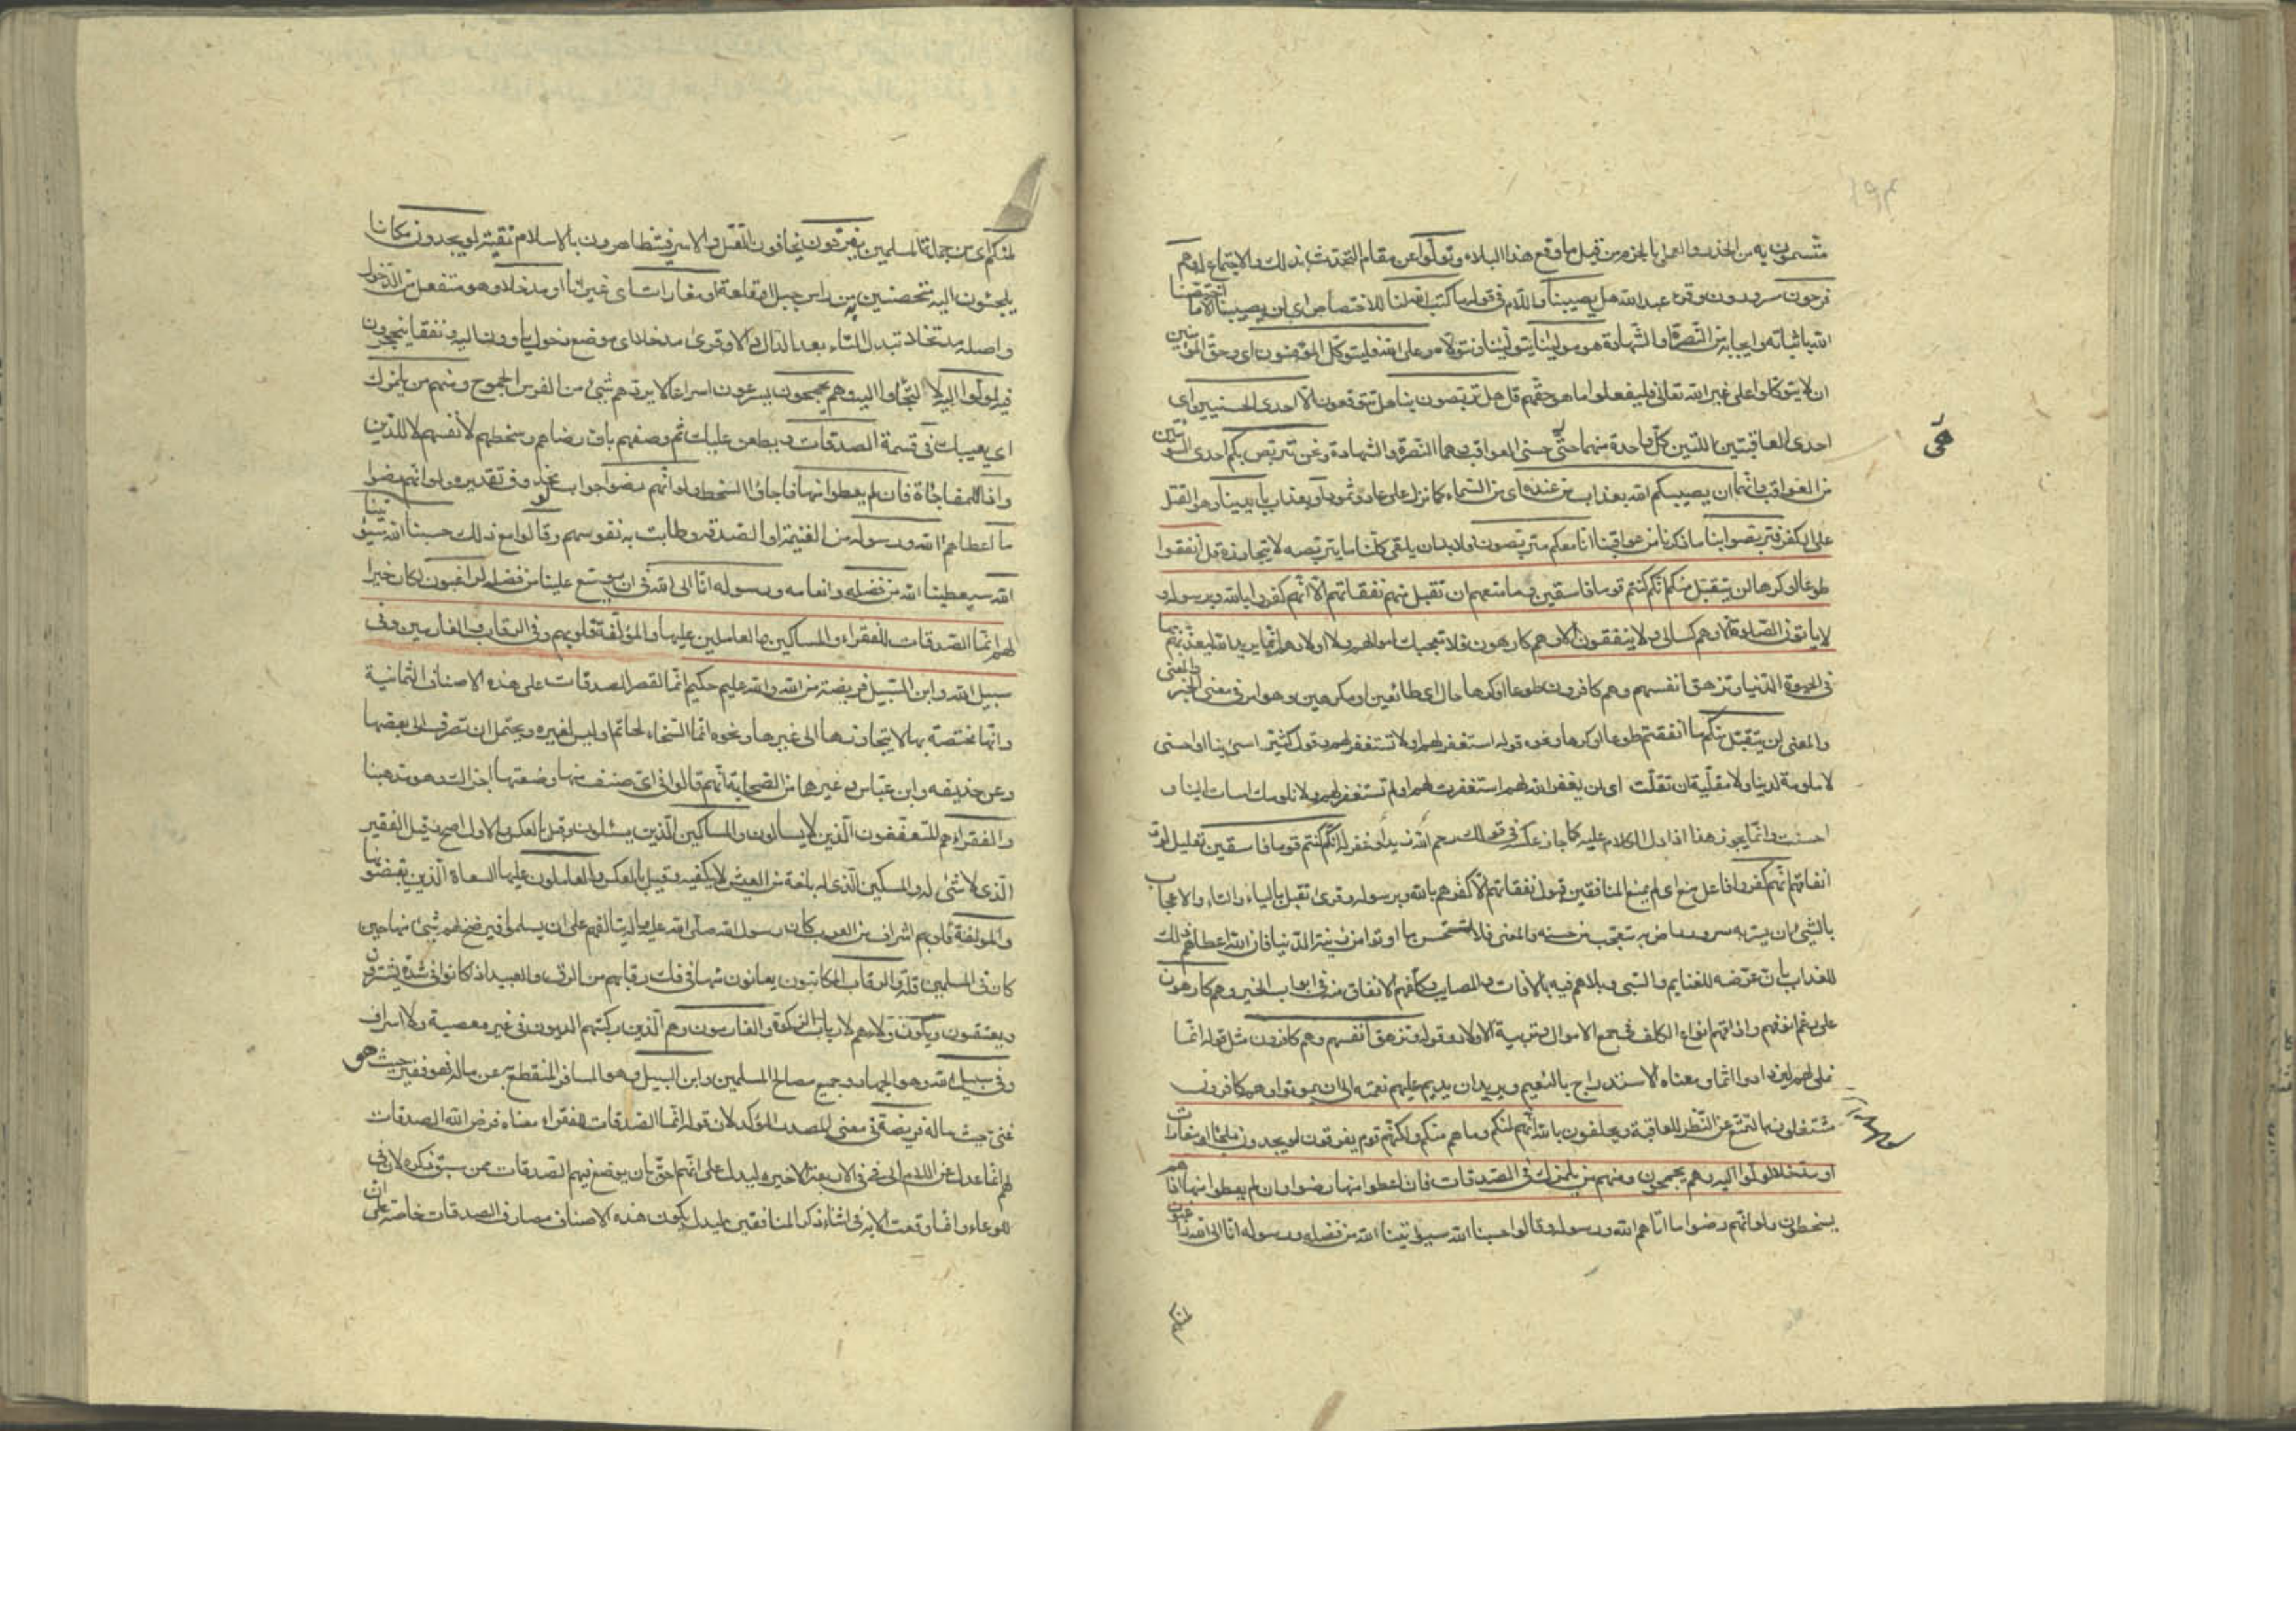 متسمون به من الحذر والعمل بالحزم من قبل ما وقع هذا البلاء وتولوا عن مقام التحدث بذلك والاجتماع له وهم
فرحون مسرورون وقرء عبد الله هل يصيبنا واللام في قوله ما كتب الله لنا للاختصاص اي لن يصيبنا الا ما اختصنا
الله باثباته وايجابه من النصرة او الشهادة هو مولينا يتولينا ونتولاه وعلى الله فليتوكل المؤمنون اي وحق المؤمنين
ان لا يتوكلوا على غير الله تعالى فليفعلوا ما هو حقهم قل هل تربصون بنا هل تتوقعون الا احدى الحسنيين اي
احدى العاقبتين اللتين كل واحدة منهما حسنى العواقب وهما النصرة والشهادة ونحن نتربص بكم احدى السوأتين
من العواقب وانهما ان يصيبكم الله بعذاب من عنده اي من السماء كما نزل على عاد وثمود او بعذاب بايدينا وهو القتل
على الكفر فتربصوا بنا ما ذكرنا من عواقبنا انا معكم متربصون ولابد ان يلقى كلنا ما يتربصه لا يتجاوزه قل انفقوا
طوعا او كرها لن يتقبل منكم انكم كنتم قوما فاسقين وما منعهم ان تقبل منهم نفقاتهم الا انهم كفروا بالله وبرسوله و
لا ياتون الصلوة الا وهم كسالى ولا ينفقون الا وهم كارهون فلا تعجبك اموالهم ولا اولادهم انما يريد الله ليعذبهم بها
في الحيوة الدنيا وتزهق انفسهم وهم كافرون طوعا او كرها حال اي طائعين او مكرهين وهو امر في معنى الخبر
والمعنى لن يتقبل منكم ما انفقتم طوعا او كرها ونحوه قوله استغفر لهم او لا تستغفر لهم وقول كثير اسيئي بنا او احسني
لا ملومة لدينا ولا مقلية ان تقلت اي لن يغفر الله لهم استغفرت لهم او لم تستغفر لهم ولا نلومك اسات الينا او
احسنت وانما يجوز هذا اذا دل الكلام عليه كما جاز عكسه في قولك رحم الله زيدا وغفر له انكم كنتم قوما فاسقين تعليل لرد
انفاقهم انهم كفروا فاعل منع اي لم يمنع المنافقين قبول نفقاتهم الا كفرهم بالله وبرسوله وقرئ تقبل بالياء والتاء والاعجاب
بالشيء ان يسر به سرور راض به متعجب من حسنه والمعنى فلا تستحسن ما اوتوا من زينة الدنيا فان الله اعطاهم ذلك
للعذاب بان عرضه للغنايم والسبي وبلاهم فيه بالافات والمصايب وكلفهم الانفاق منه في ابواب الخير وهم كارهون
على رغم انفهم واذاقهم انواع الكلف في جمع الاموال وتربية الاولاد وقوله وتزهق انفسهم وهم كافرون مثل قوله انما
نملي لهم ليزدادوا اثما ومعناه الاستدراج بالنعيم ويريد ان يديم عليهم نعمته الى ان يموتوا وهم كافرون
مشتغلون بالتمتع عن النظر للعاقبة ويحلفون بالله انهم لمنكم وما هم منكم ولكنهم قوم يفرقون لو يجدون ملجأ او مغارات
او مدخلا لولوا اليه وهم يجمحون ومنهم من يلمزك في الصدقات فان اعطوا منها رضوا وان لم يعطوا منها اذا هم
يسخطون ولو انهم رضوا ما اتاهم الله ورسوله وقالوا حسبنا الله سيؤتينا الله من فضله ورسوله انا الى الله راغبون
لمنكم اي من جملة المسلمين يفرقون يخافون القتل والاسر فيتظاهرون بالاسلام تقية لو يجدون مكانا
يلجئون اليه متحصنين به من راس جبل او قلعة او مغارات اي غيرانا او مدخلا وهو مفتعل من الدخول
واصله متدخل تبدل التاء بعد الدال دالا وقرئ مدخلا اي موضع دخول ياوون اليه ونفقا ينجحرون
فيه لولوا اليه لالتجاوا اليه وهم يجمحون يسرعون اسراعا لا يردهم شيء من الفرس الجموح ومنهم من يلمزك
اي يعيبك في قسمة الصدقات ويطعن عليك ثم وصفهم بان رضاهم وسخطهم لانفسهم لا للدين
واذا للمفاجاة فان لم يعطوا منها فاجاؤا السخط ولو انهم رضوا جواب لو محذوف تقديره ولو انهم رضوا
ما اعطاهم الله ورسوله من الغنيمة او الصدقة وطابت به نفوسهم وقالوا مع ذلك حسبنا الله سيؤتينا
الله سيعطينا الله من فضله وانعامه ورسوله انا الى الله في ان يوسع علينا من فضله لراغبون لكان خيرا
لهم انما الصدقات للفقراء والمساكين والعاملين عليها والمؤلفة قلوبهم وفي الرقاب والغارمين وفي
سبيل الله وابن السبيل فريضة من الله والله عليم حكيم انما لقصر الصدقات على هذه الاصناف الثمانية
وانها مختصة بها لا يتجاوزها الى غيرها ونحوه انما السخاء لحاتم اي ليس لغيره ويحتمل ان تصرف الى بعضها
وعن حذيفه وابن عباس وغيرهما من الصحابة انهم قالوا في اي صنف منها وضعتها اجزاك وهو مذهبنا
والفقراء هم المتعففون الذين لا يسالون والمساكين الذين يسئلون وقيل بالعكس والاول اصح وقيل الفقير
الذي لا شيء له والمسكين الذي له بلغة من العيش لا يكفيه وقيل بالعكس والعاملون عليها السعاة الذين يقبضونها
والمؤلفة قلوبهم اشراف من العرب كان رسول الله صلى الله عليه واله يتالفهم على ان يسلموا فيرضخ لهم شيئا منها حين
كان في المسلمين قلة والرقاب المكاتبون يعانون منها في فك رقابهم من الرق والعبيد اذا كانوا في شدة يشترون
ويعتقون ويكون ولاءهم لارباب الزكوة والغارمون وهم الذين ركبتهم الديون في غير معصية ولا اسراف
وفي سبيل الله وهو الجهاد وجميع مصالح المسلمين وابن السبيل وهو المسافر المنقطع به عن ماله فهو فقير حيث هو
غني حيث ماله فريضة في معنى المصدر المؤكد لان قوله انما الصدقات للفقراء معناه فرض الله الصدقات
لهم وانما عدل عن اللام الى في في الاربعة الاخيرة ليدل على انهم احق بان يوضع فيهم الصدقات ممن سبق ذكره لان في
للوعاء وانما وقعت الاية في اثناء ذكر المنافقين ليدل بكون هذه الاصناف مصارف الصدقات خاصة على ان